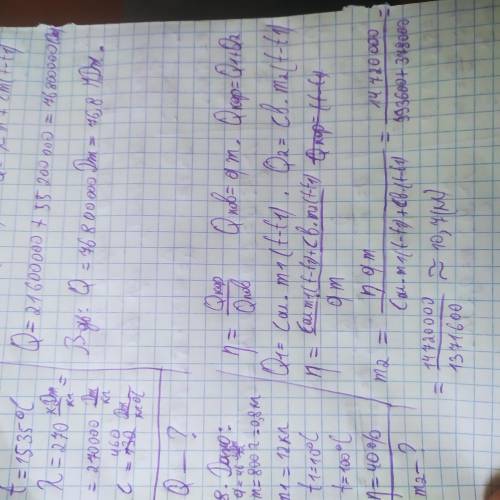 t = 1535°C
λ = 270 кДж/кг =
= 270000 Дж/кг
c = 460 Дж/кг·°C
Q - ?
Q = 21600000 + 55200000 = 76800000 (Дж)
Q = 76800000 Дж = 76,8 МДж.
8. Дано:
m = 800 г = 0,8 кг
m1 = 12 кг
t1 = 10°C
t = 100°C
η = 40%
m2 - ?
η = Qкор / Qпов Qпов = qm. Qкор = Q1 + Q2
Q1 = Cал·m1(t-t1). Q2 = Cв·m2(t-t1)
η = Cал·m1(t-t1) + Cв·m2(t-t1) / qm
m2 = ηqm / Cал·m1(t-t1) + Cв(t-t1) = 14720000 / 993600 + 378000 =
= 14720000 / 1371600 ≈ 10,7 (кг)